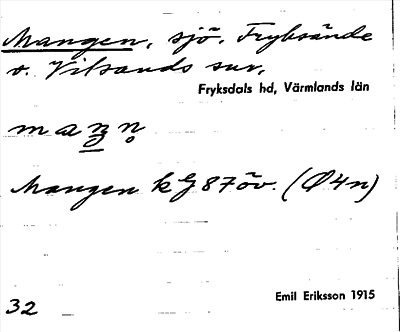 Mangen, sjö, Fryksände
o. Vitsands snr,
Fryksdals hd, Värmlands län
Mangen kG 87öv. (Ø4n)
32
Emil Eriksson 1915